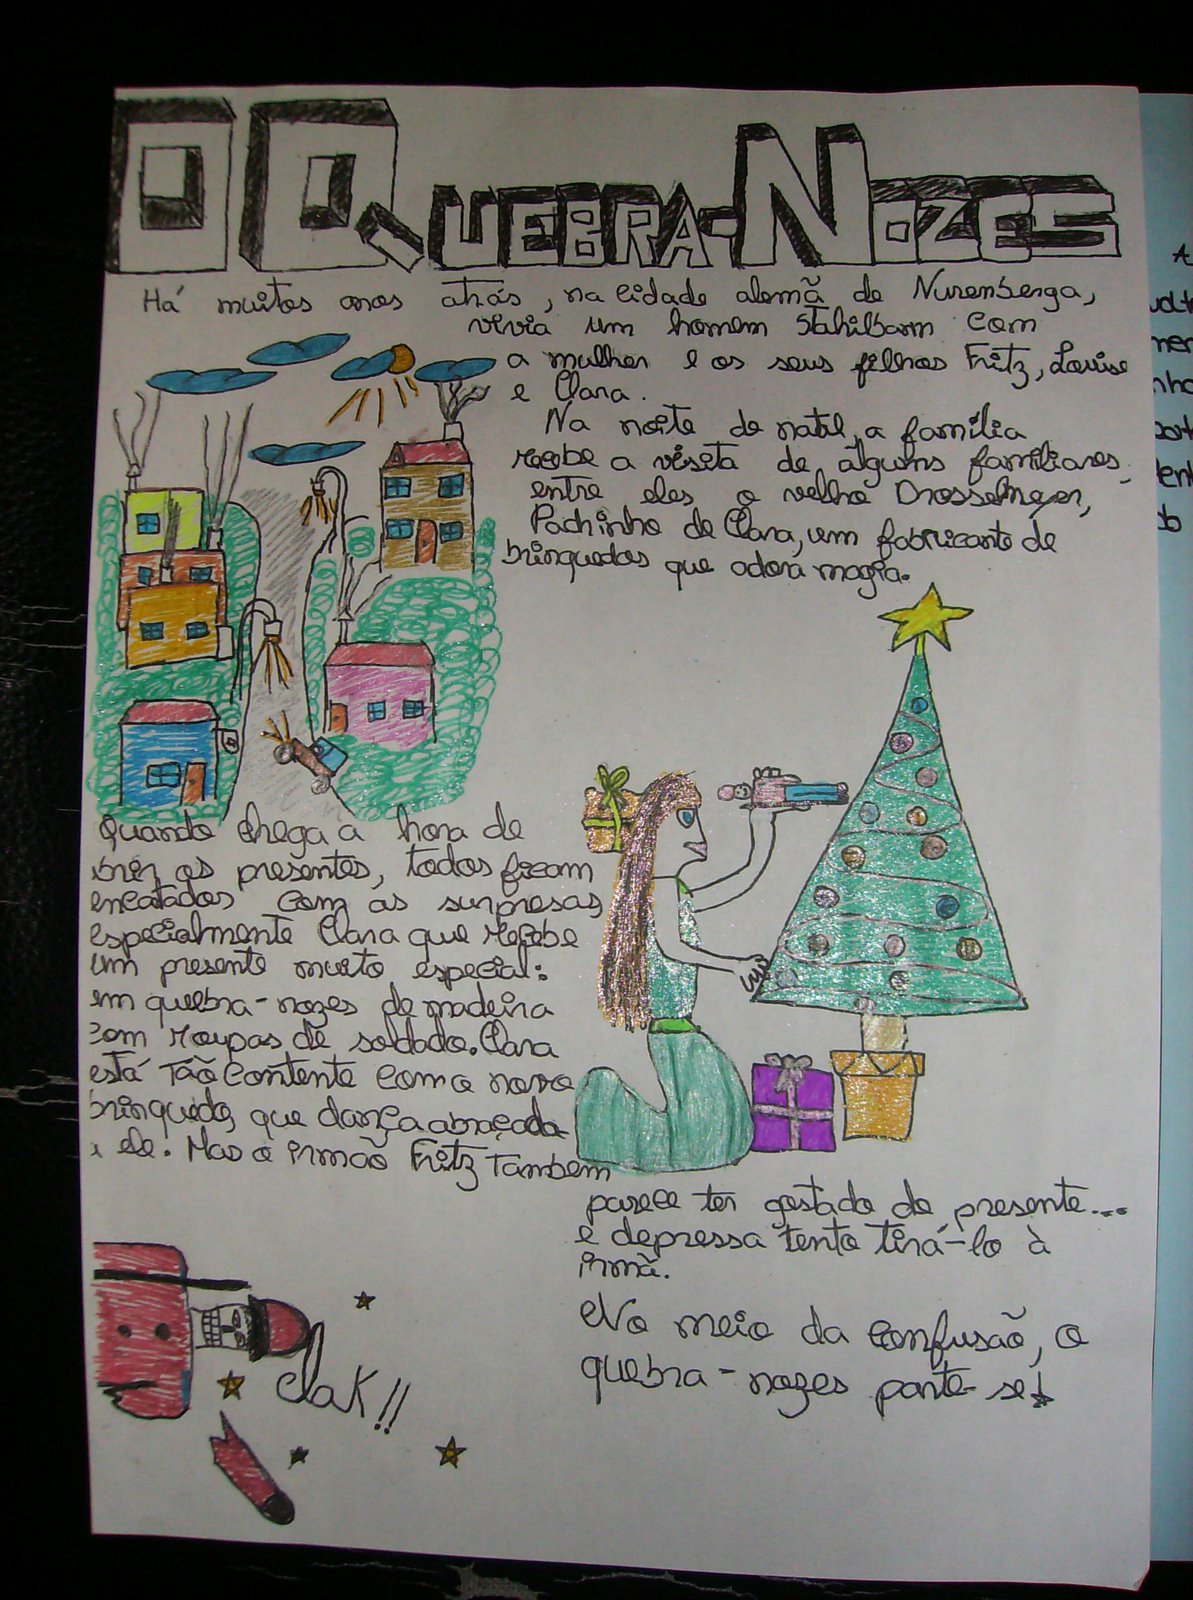 O QUEBRA-NOZES
Há muitos anos atrás, na cidade alemã de Nuremberga,
vivia um homem Stahilbarm com
a mulher e os seus filhos Fritz, Louise
e Clara.
Na noite de natal, a família
recebe a visita de alguns familiares,
entre eles o velho Drosselmeyer,
Padrinho de Clara, um fabricante de
brinquedos que adora magia.
Quando chega a hora de
abrir os presentes, todos ficam
encatados com as surpresas,
especialmente Clara que recebe
um presente muito especial:
um quebra-nozes de madeira
com roupas de soldado. Clara
está tão contente com o novo
brinquedo, que dança abraçada
a ele. Mas o irmão Fritz também
parece ter gostado do presente...
e depressa tenta tirá-lo à
irmã.
No meio da confusão, o
quebra-nozes parte-se!
Clak!!